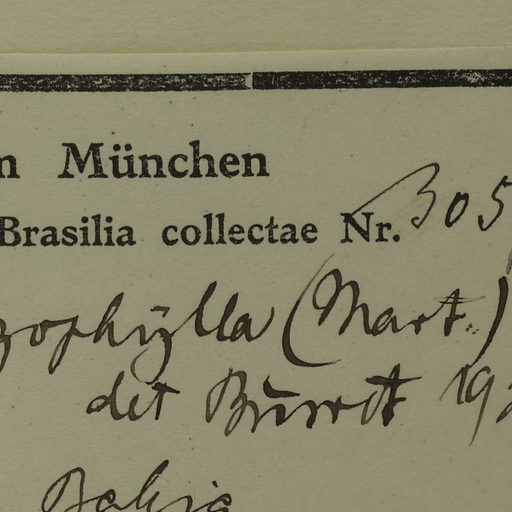 n München
Brasilia collectae Nr. 305
zophylla (Mart.)
det Burret 19
Bahia